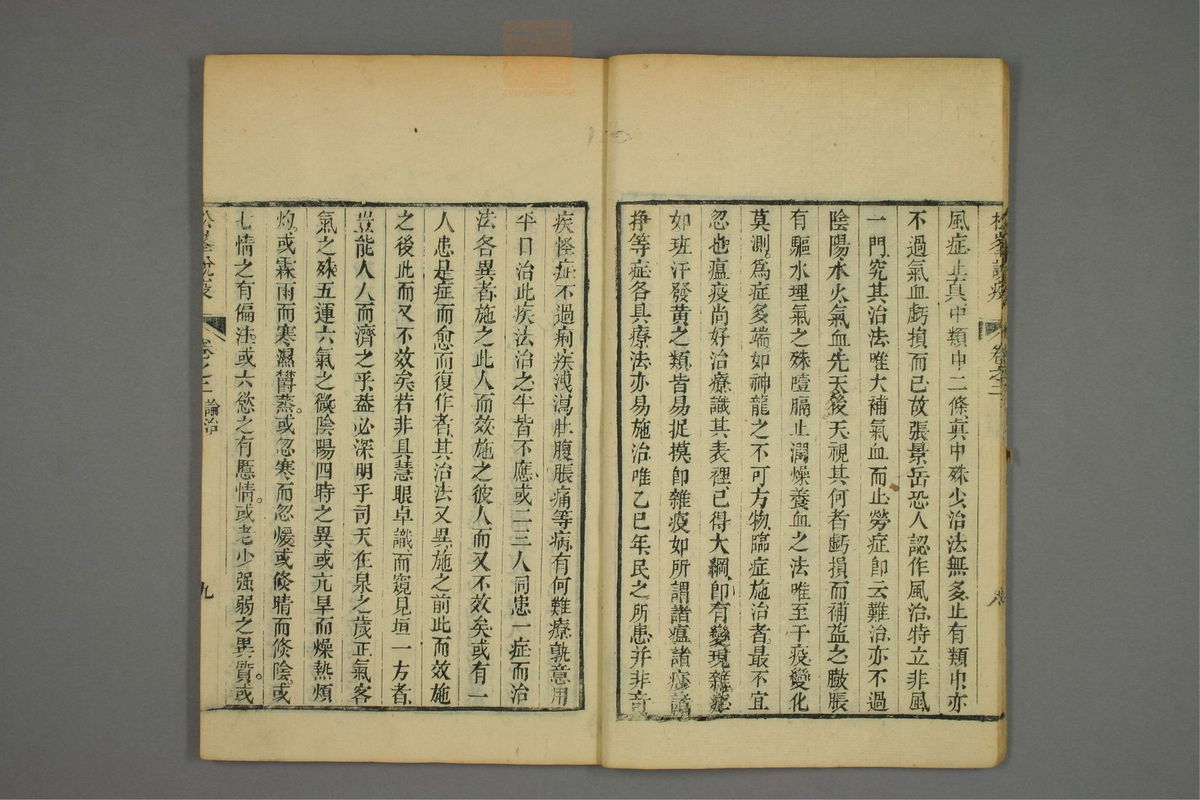 風症止真中類中二條真中殊少治法無多止有類中亦
不過氣血虧損而已故張景岳恐人認作風治特立非風
一門究其治法唯大補氣血而止勞症卽云難治亦不過
陰陽水火氣血先天後天視其何者虧損而補益之臌脹
有驅水理氣之殊噎膈止潤燥養血之法唯至于疫變化
莫測爲症多端如神龍之不可方物臨症施治者最不宜
忽也瘟疫尚好治療識其表裡已得大綱卽有變現雜症
如班汗發黃之類皆易捉摸卽雜疫如所謂諸瘟諸痧諸
挣等症各具療法亦易施治唯乙巳年民之所患并非奇
疾怪症不過痢疾洩瀉肚腹脹痛等病有何難療孰意用
平日治此疾法治之牛皆不應或二三人同患一症而治
法各異者施之此人而效施之彼人而又不效矣或有一
人患是症而愈而復作者其治法又異施之前此而效施
之後此而又不效矣若非具慧眼卓識而窺見垣一方者
豈能人人而濟之乎益必深明乎司天在泉之歲正氣客
氣之殊五運六氣之微陰陽四時之異或亢旱而燥熱煩
灼或霖雨而寒濕欝蒸或忽寒而忽煖或倐晴而倐陰或
七情之有偏注或六慾之有慝情或老少强弱之異質或
松峯說疫 卷之二 論治 九